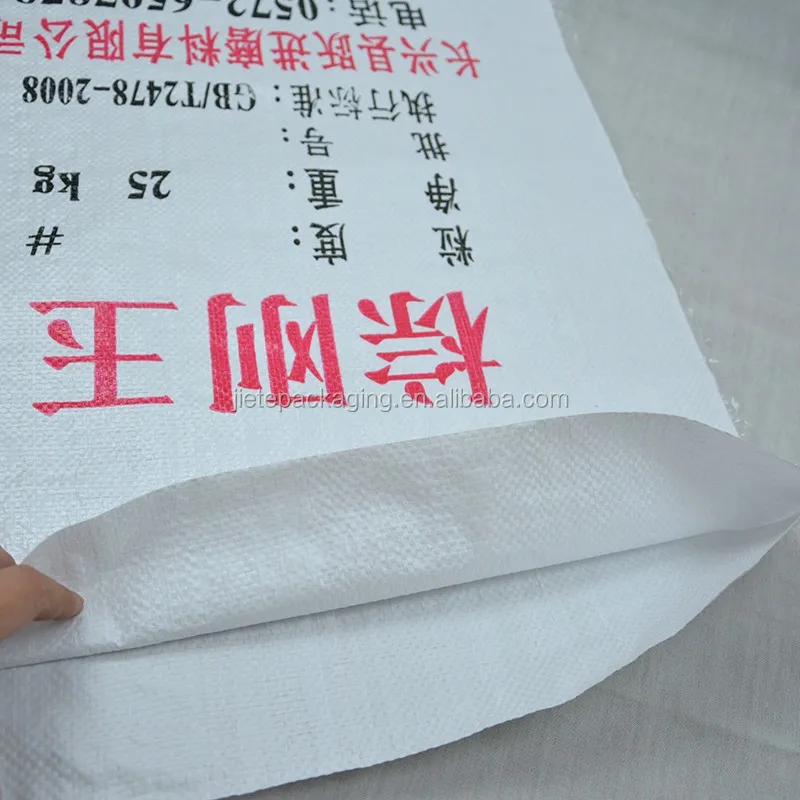 棕刚玉
粒 度: #
净 重: 25 kg
批 号:
执行标准: GB/T2478-2008
长兴县跃进磨料有限公司
电话:0572-
jietepackaging.en.alibaba.com